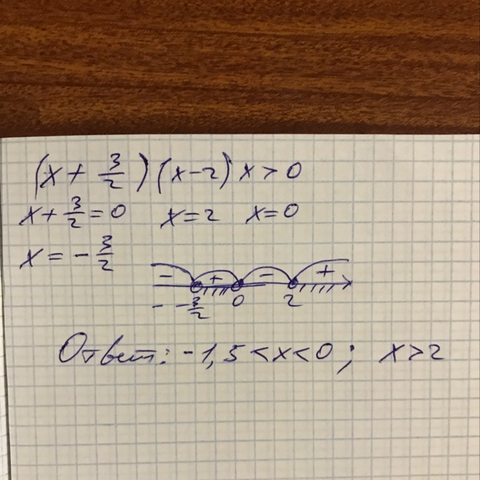 (x + 3/2)(x-2)x > 0
x + 3/2 = 0 x=2 x=0
x = - 3/2
- + - +
- - 3/2 0 2
Ответ: -1,5 < x < 0 ; x > 2